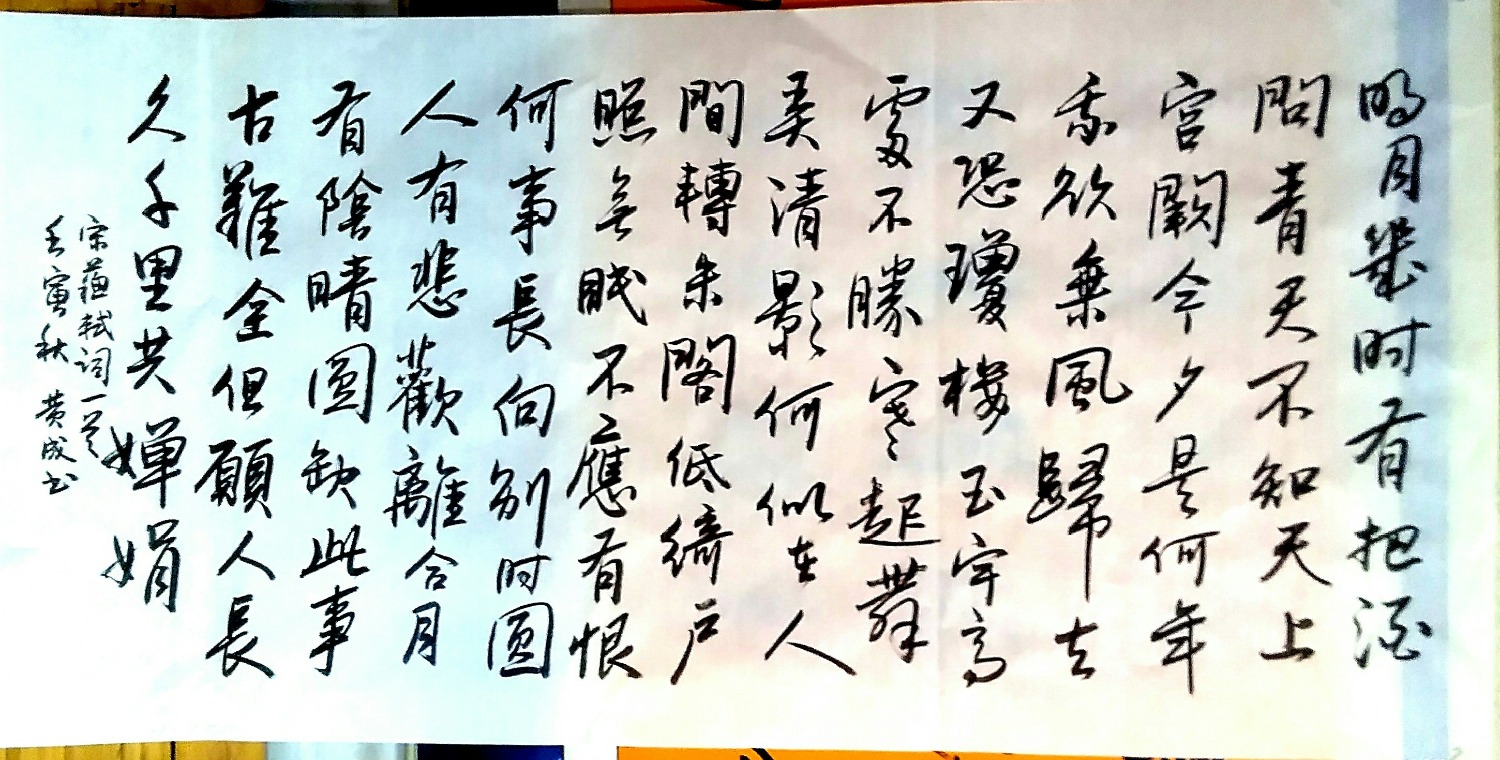 明月幾时有把酒
問青天不知天上
宫闕今夕是何年
我欲乘風歸去
又恐瓊樓玉宇高
處不勝寒起舞
弄清影何似在人
間轉朱閣低綺户
照無眠不應有恨
何事長向别时圆
人有悲歡離合月
有陰晴圆缺此事
古難全但願人長
久千里共嬋娟
宋蘇軾词一首
壬寅秋 黄成书